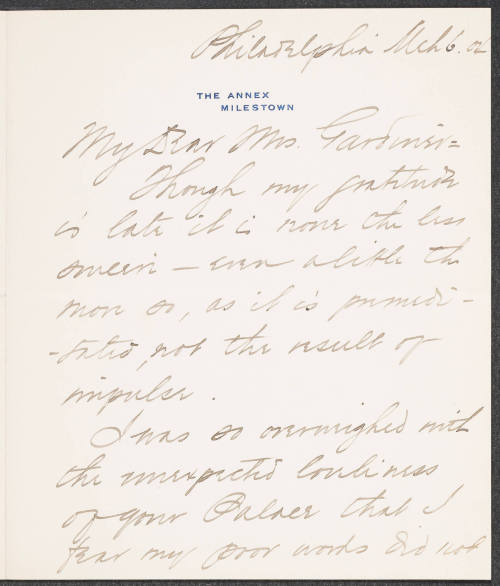 Philadelphia Mch 6. 02
THE ANNEX
MILESTOWN
My Dear Mrs. Gardiner=
Though my gratitude
is late it is none the less
sincere – even a little the
more so, as it is premedi-
-tated, not the result of
impulse.
I was so overweighed with
the unexpected loveliness
of your Palace that I
fear my poor words did not